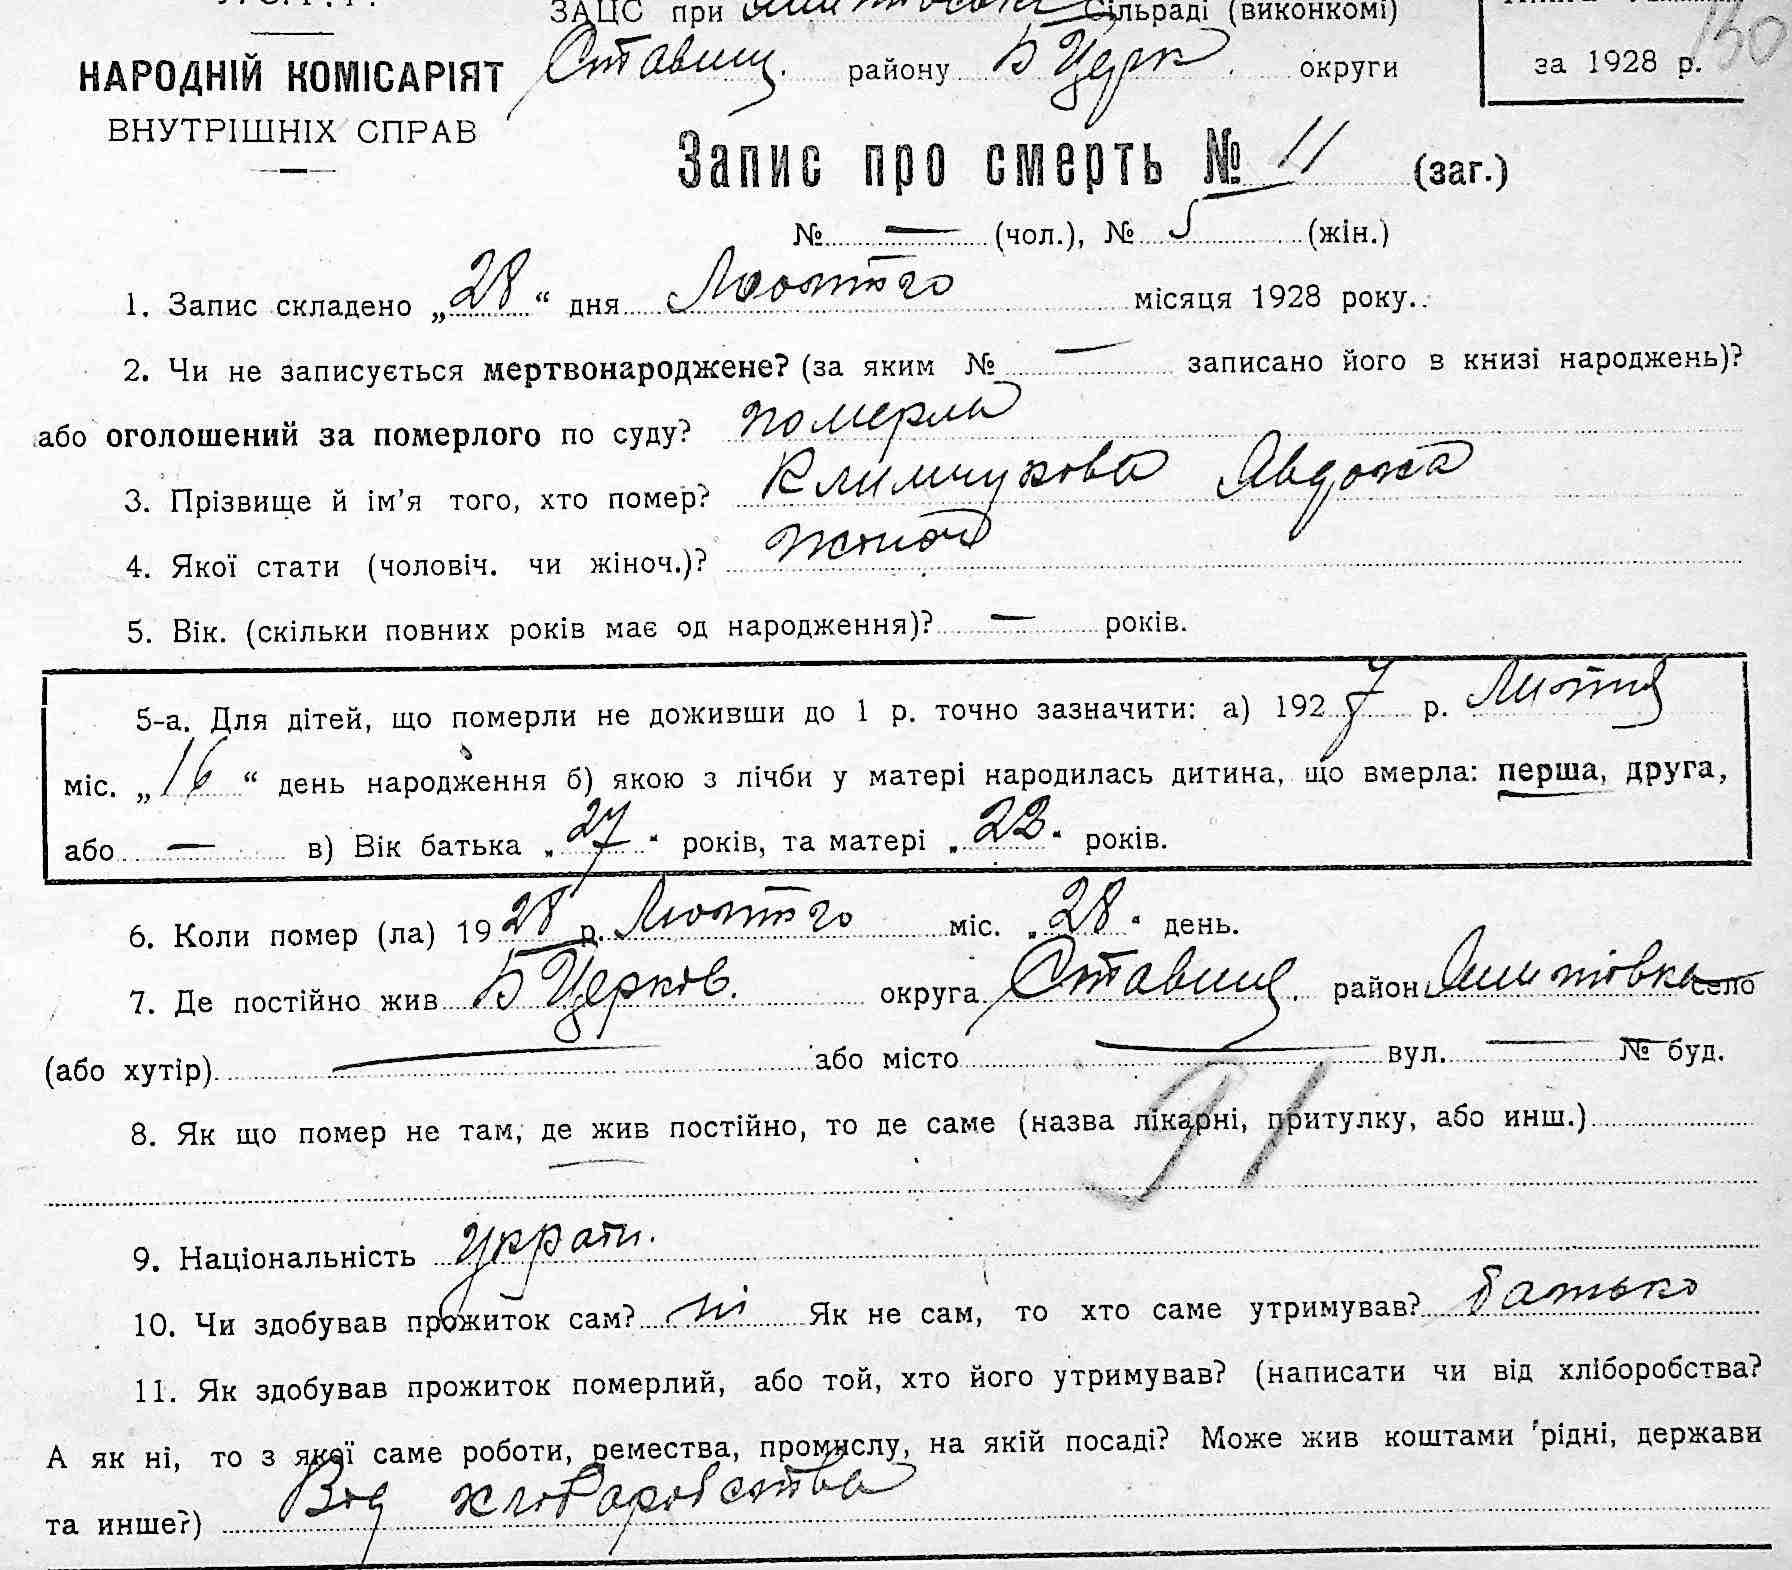 ЗАЦС при Сільраді (виконкомі)
НАРОДНІЙ КОМІСАРІЯТ Ставищ. району Б Церк. округи
за 1928 р. 130
ВНУТРІШНІХ СПРАВ
Запис про смерть № 11 (заг.)
№ — (чол.), № 5 (жін.)
1. Запис складено „28“ дня Лютого місяця 1928 року.
2. Чи не записується мертвонароджене? (за яким № — записано його в книзі народжень)?
або оголошений за померлого по суду? померла
3. Прізвище й ім’я того, хто помер? Климчукова Явдоха
4. Якої стати (чоловіч. чи жіноч.)? жіноч
5. Вік. (скільки повних років має од народження)? — років.
5-а. Для дітей, що померли не доживши до 1 р. точно зазначити: а) 1927 р. Липня
міс. „16“ день народження б) якою з лічби у матері народилась дитина, що вмерла: перша, друга,
або — в) Вік батька „27“ років, та матері „22“ років.
6. Коли помер (ла) 1928 р. Лютого міс. „28“ день.
7. Де постійно жив Б Церків. округа Ставищ. район село
(або хутір) — або місто — вул. — № буд.
8. Як що помер не там, де жив постійно, то де саме (назва лікарні, притулку, або инш.)
91
9. Національність
10. Чи здобував прожиток сам? ні Як не сам, то хто саме утримував? батько
11. Як здобував прожиток померлий, або той, хто його утримував? (написати чи від хліборобства?
А як ні, то з якої саме роботи, ремества, промислу, на якій посаді? Може жив коштами рідні, держави
та инше?) Від хліборобства